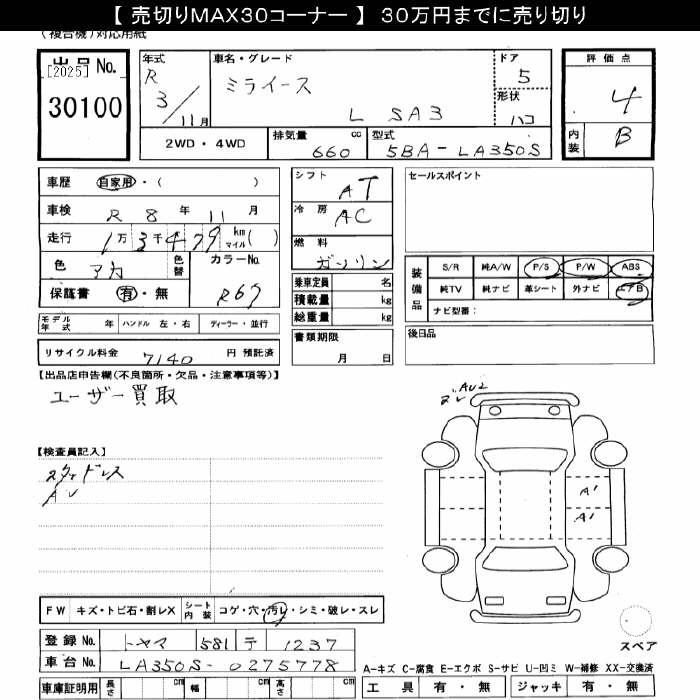 【 売切りMAX30コーナー 】 30万円までに売り切り
(複合機)対応用紙
出品 No.
[2025]
30100
年式 車名・グレード ドア 評価点
R ミライース 5
3/11月 L SA3 形状 ハコ 4
2WD・4WD 排気量 cc 型式 内装 B
660 5BA-LA350S
車歴 自家用・( )
車検 R 8 年 11 月
走行 1万3千479 km マイル( )
色 アカ 色替 カラーNo. R67
保証書 有・無
シフト AT
冷房 AC
燃料 ガソリン
乗車定員 名
積載量 kg
総重量 kg
書類期限
月 日
セールスポイント
装備品 S/R 純A/W P/S P/W ABS
純TV 純ナビ 革シート 外ナビ エアB
ナビ型番:
後日品
モデル年式 年 ハンドル 左・右 ディーラー・並行
リサイクル料金 7140 円 預託済
【出品店申告欄(不良箇所・欠品・注意事項等)】
ユーザー買取
AU2
【検査員記入】
スタッドレス
AU
A1
A1
FW キズ・トビ石・割レX シート内装 コゲ・穴・汚レ・シミ・破レ・スレ
登録No. トヤマ 581 テ 1237
車台No. LA350S-0275778
スペア
A-キズ C-腐食 E-エクボ S-サビ U-凹ミ W-補修 XX-交換済
車庫証明用 長さ cm 幅 cm 高さ cm
工具 有・無 ジャッキ 有・無